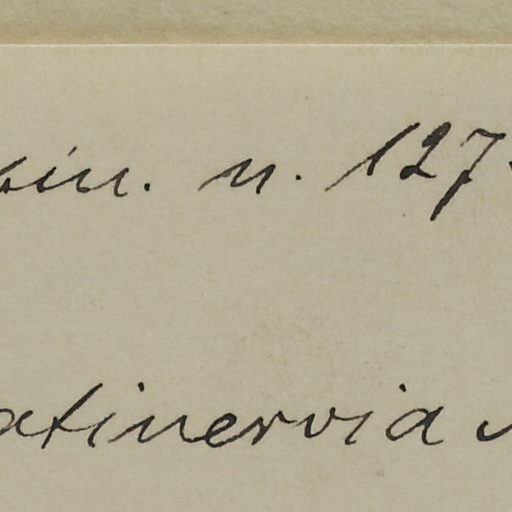 in. n. 127
atinervia